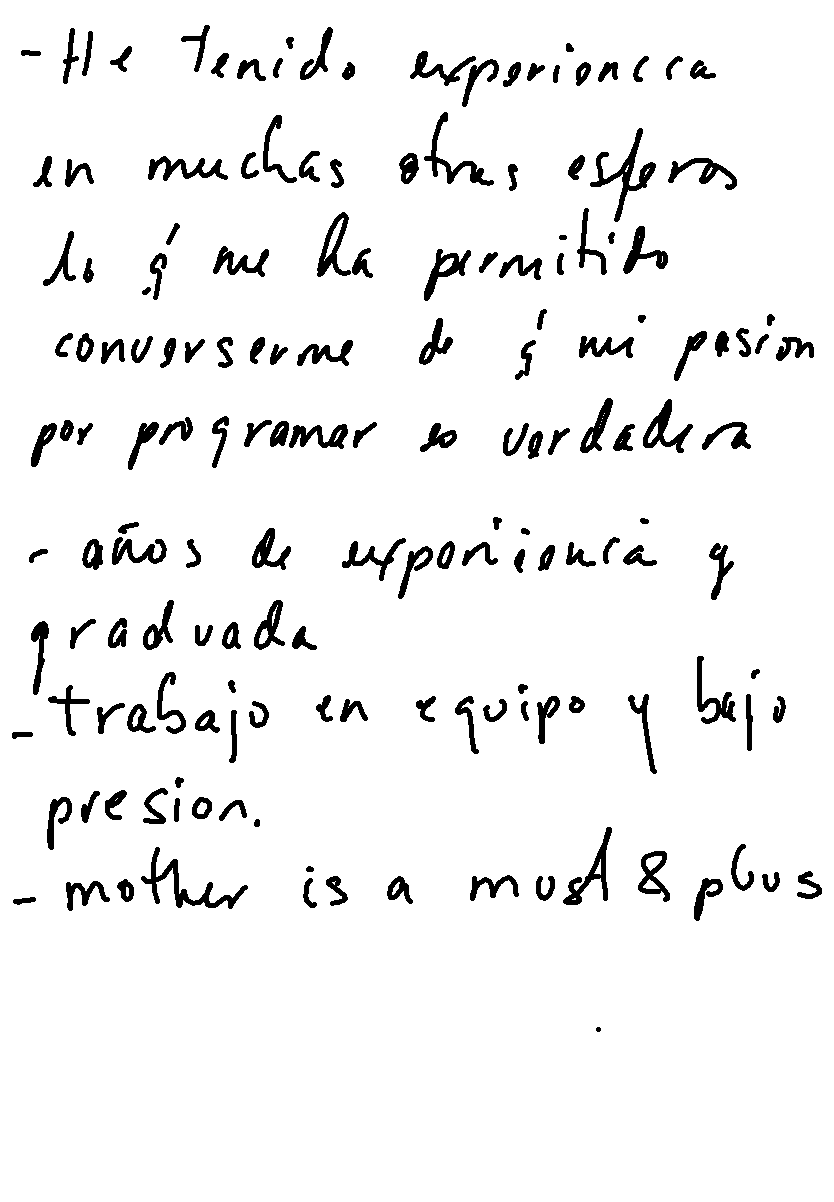 - He tenido experiencia
en muchas otras esferas
lo q' me ha permitido
converserme de q' mi pasion
por programar es verdadera
- años de experiencia y
graduada
- trabajo en equipo y bajo
presion.
- mother is a must & plus